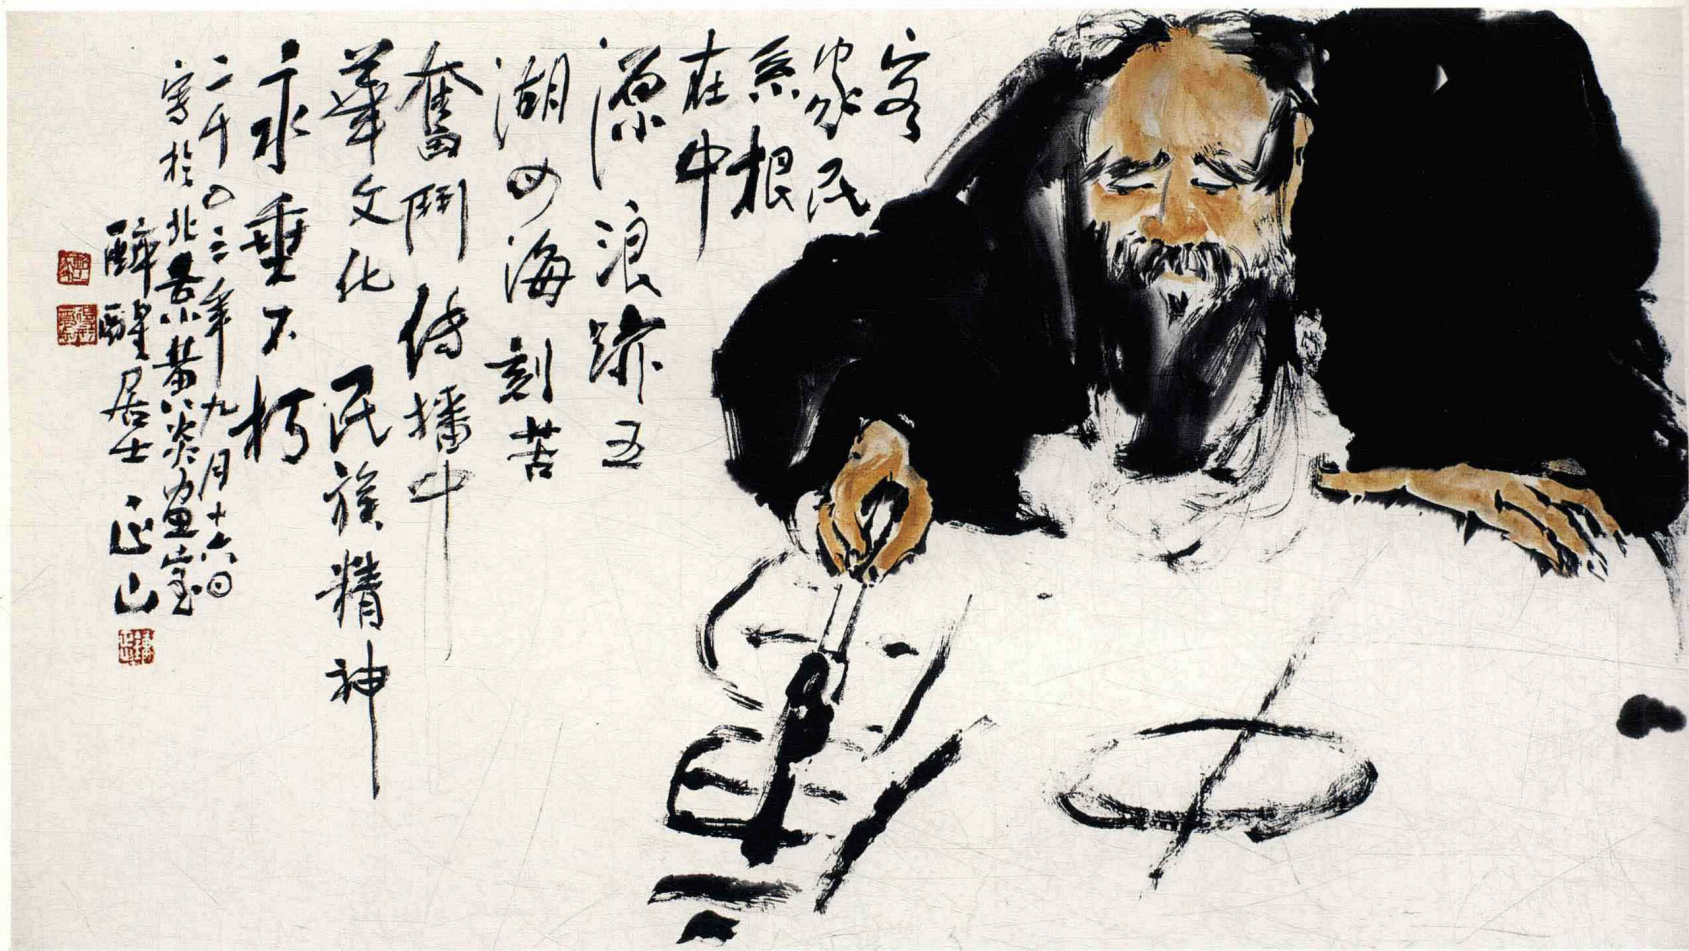 客
家民
系根
在中
源浪跡五
湖四海刻苦
奮鬥傳播中
華文化民族精神
永垂不朽
二千〇三年九月十六日
写於北景黄炎畫室
醉醒居士 正山